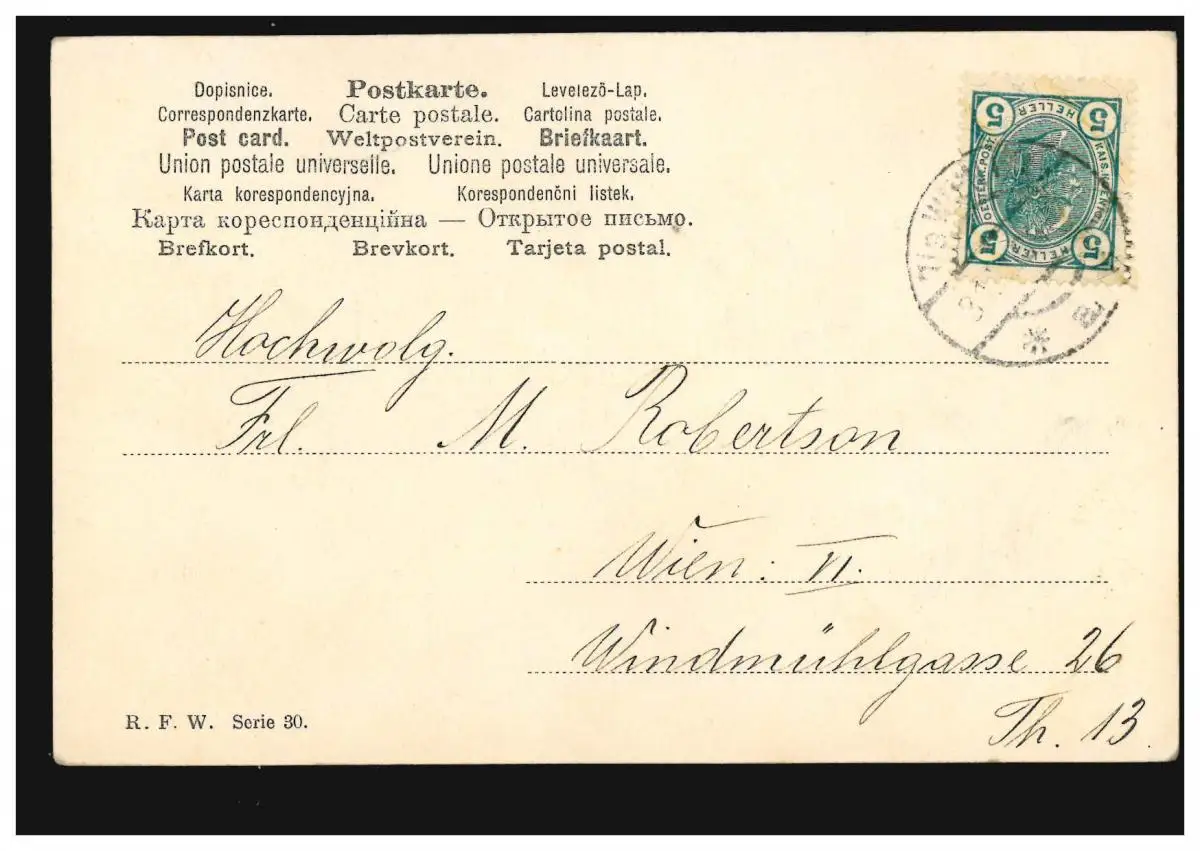 Dopisnice. Postkarte. Levelező-Lap.
Correspondenzkarte. Carte postale. Cartolina postale.
Post card. Weltpostverein. Briefkaart.
Union postale universelle. Unione postale universale.
Karta korespondencyjna. Korespondenčni listek.
Карта кореспонденційна — Открытое письмо.
Brefkort. Brevkort. Tarjeta postal.
5 HELLER 5
KAIS. OESTERR. POST.
5 HELLER 5
Hochwolg.
Frl. M. Robertson
Wien: VI.
Windmühlgasse 26
Th. 13.
R. F. W. Serie 30.